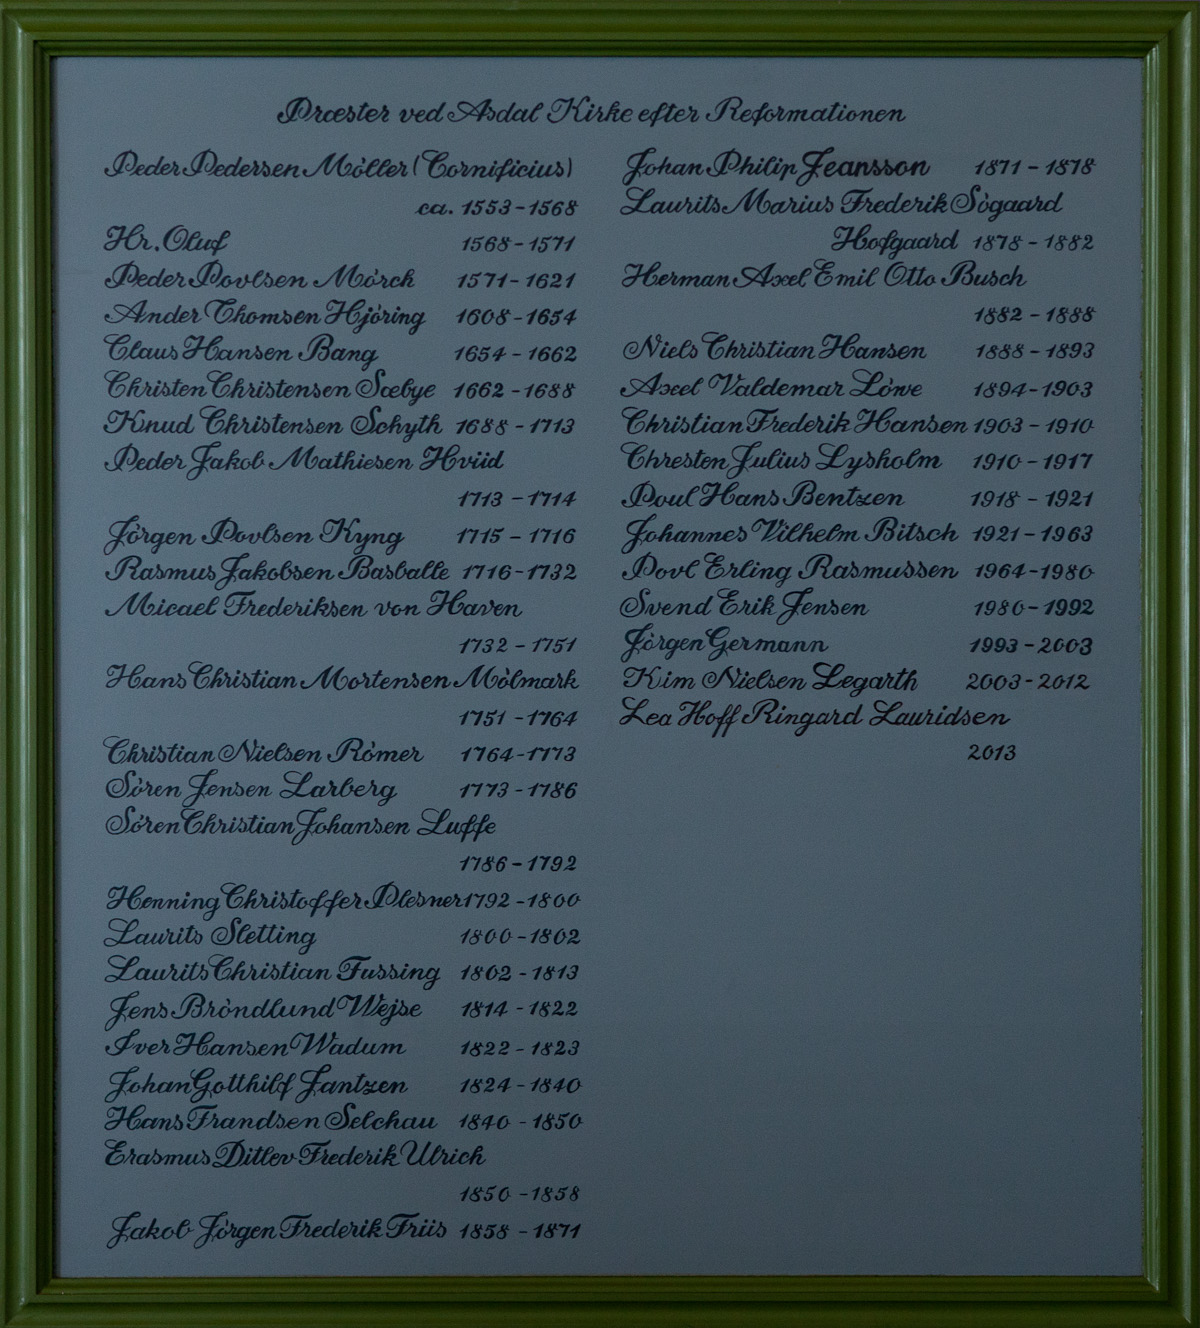 Præster ved Asdal Kirke efter Reformationen
Peder Pedersen Möller (Cornificius)
ca. 1553-1568
Hr. Oluf 1568-1571
Peder Povlsen Mörch 1571-1621
Ander Thomsen Hjöring 1608-1654
Claus Hansen Bang 1654-1662
Christen Christensen Sæbye 1662-1688
Knud Christensen Schyth 1688-1713
Peder Jakob Mathiesen Hviid
1713-1714
Jörgen Povlsen Kyng 1715-1716
Rasmus Jakobsen Basballe 1716-1732
Micael Frederiksen von Haven
1732-1751
Hans Christian Mortensen Mölmark
1751-1764
Christian Nielsen Römer 1764-1773
Sören Jensen Larberg 1773-1786
Sören Christian Johansen Luffe
1786-1792
Henning Christoffer Plesner 1792-1800
Laurits Sletting 1800-1802
Laurits Christian Fussing 1802-1813
Jens Bröndlund Wejse 1814-1822
Iver Hansen Wadum 1822-1823
Johan Gotthilf Jantzen 1824-1840
Hans Frandsen Selchau 1840-1850
Erasmus Ditlev Frederik Ulrich
1850-1858
Jakob Jörgen Frederik Friis 1858-1871
Johan Philip Jeansson 1871-1878
Laurits Marius Frederik Sögaard
Hofgaard 1878-1882
Herman Axel Emil Otto Busch
1882-1888
Niels Christian Hansen 1888-1893
Axel Valdemar Löwe 1894-1903
Christian Frederik Hansen 1903-1910
Chresten Julius Lysholm 1910-1917
Poul Hans Bentzen 1918-1921
Johannes Vilhelm Bitsch 1921-1963
Povl Erling Rasmussen 1964-1980
Svend Erik Jensen 1980-1992
Jörgen Germann 1993-2003
Kim Nielsen Legarth 2003-2012
Lea Hoff Ringard Lauridsen
2013